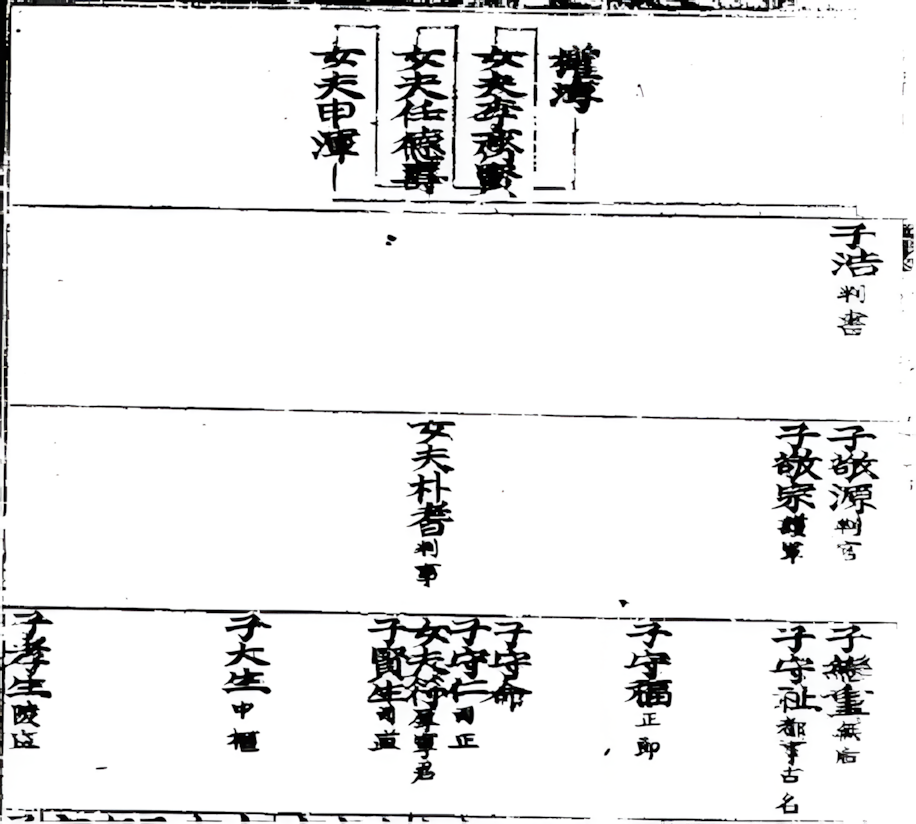 權溥
女夫李齊賢
女夫任德壽
女夫申渾
子浩 判書
子敬源 判官
子敬宗 護軍
女夫朴耆 判事
子繼重 無后
子守祉 都事 古名
子守福 正郎
子守命
子守仁 司正
女夫衍 寧君
子賢生 司直
子大生 中樞
子孝生 陵直